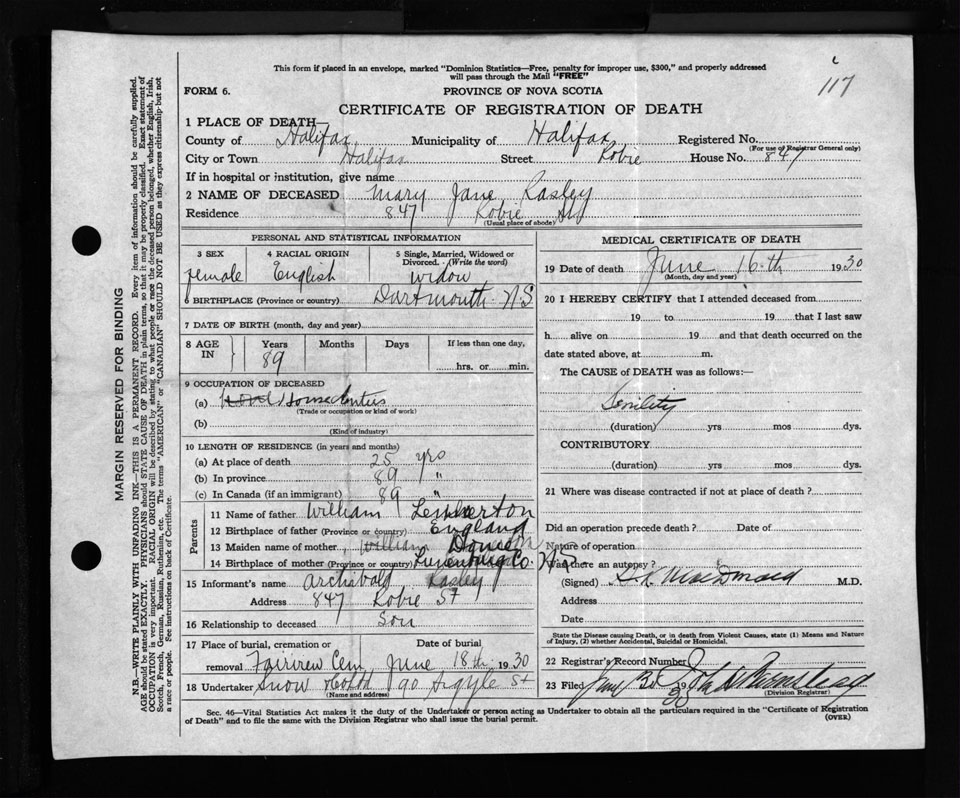 This form if placed in an envelope, marked "Dominion Statistics—Free, penalty for improper use, $300," and properly addressed
will pass through the Mail "FREE"
117
FORM 6.
PROVINCE OF NOVA SCOTIA
CERTIFICATE OF REGISTRATION OF DEATH
1 PLACE OF DEATH—
County of Halifax Municipality of Halifax Registered No.
(For use of Registrar General only)
City or Town Halifax Street Robie House No. 847
If in hospital or institution, give name
2 NAME OF DECEASED Mary Jane Rasley
Residence 847 Robie St
(Usual place of abode)
PERSONAL AND STATISTICAL INFORMATION
3 SEX 4 RACIAL ORIGIN 5 Single, Married, Widowed or
Divorced. (Write the word)
female English widow
6 BIRTHPLACE (Province or country) Dartmouth N.S
7 DATE OF BIRTH (month, day and year)
8 AGE IN Years Months Days If less than one day,
89 hrs. or min.
9 OCCUPATION OF DECEASED
(a)
(Trade or occupation or kind of work)
(b)
(Kind of industry)
10 LENGTH OF RESIDENCE (in years and months)
(a) At place of death 25 yrs
(b) In province 89 "
(c) In Canada (if an immigrant) 89 "
Parents
11 Name of father William
12 Birthplace of father (Province or country) England
13 Maiden name of mother William
14 Birthplace of mother (Province or country) Lunenburg Co. N.S
15 Informant's name Archibald Rasley
Address 847 Robie St
16 Relationship to deceased Son
17 Place of burial, cremation or Date of burial
removal Fairview Cem June 18th 1930
18 Undertaker Snow 90 Argyle St
(Name and address)
MEDICAL CERTIFICATE OF DEATH
19 Date of death June 16th 1930
(Month, day and year)
20 I HEREBY CERTIFY that I attended deceased from
19 to 19 that I last saw
h alive on 19 and that death occurred on the
date stated above, at m.
The CAUSE of DEATH was as follows:—
Senility
(duration) yrs mos dys.
CONTRIBUTORY
(duration) yrs mos dys.
21 Where was disease contracted if not at place of death?
Did an operation precede death? Date of
Nature of operation
Was there an autopsy?
(Signed) MacDonald M.D.
Address
Date
State the Disease causing Death, or in death from Violent Causes, state (1) Means and Nature
of Injury, (2) whether Accidental, Suicidal or Homicidal.
22 Registrar's Record Number
23 Filed June 30
(Division Registrar)
Sec. 46—Vital Statistics Act makes it the duty of the Undertaker or person acting as Undertaker to obtain all the particulars required in the "Certificate of Registration
of Death" and to file the same with the Division Registrar who shall issue the burial permit.
(OVER)
MARGIN RESERVED FOR BINDING
N.B.—WRITE PLAINLY WITH UNFADING INK—THIS IS A PERMANENT RECORD. Every item of information should be carefully supplied.
AGE should be stated EXACTLY. PHYSICIANS should STATE CAUSE OF DEATH in plain terms, so that it may be properly classified. Exact statement of
OCCUPATION is very important. RACIAL ORIGIN will be described by stating to what people or race the deceased person belonged, whether English, Irish,
Scotch, French, German, Russian, Ruthenian, etc. The terms "AMERICAN" or "CANADIAN" SHOULD NOT BE USED as they express citizenship but not
a race or people. See instructions on back of Certificate.